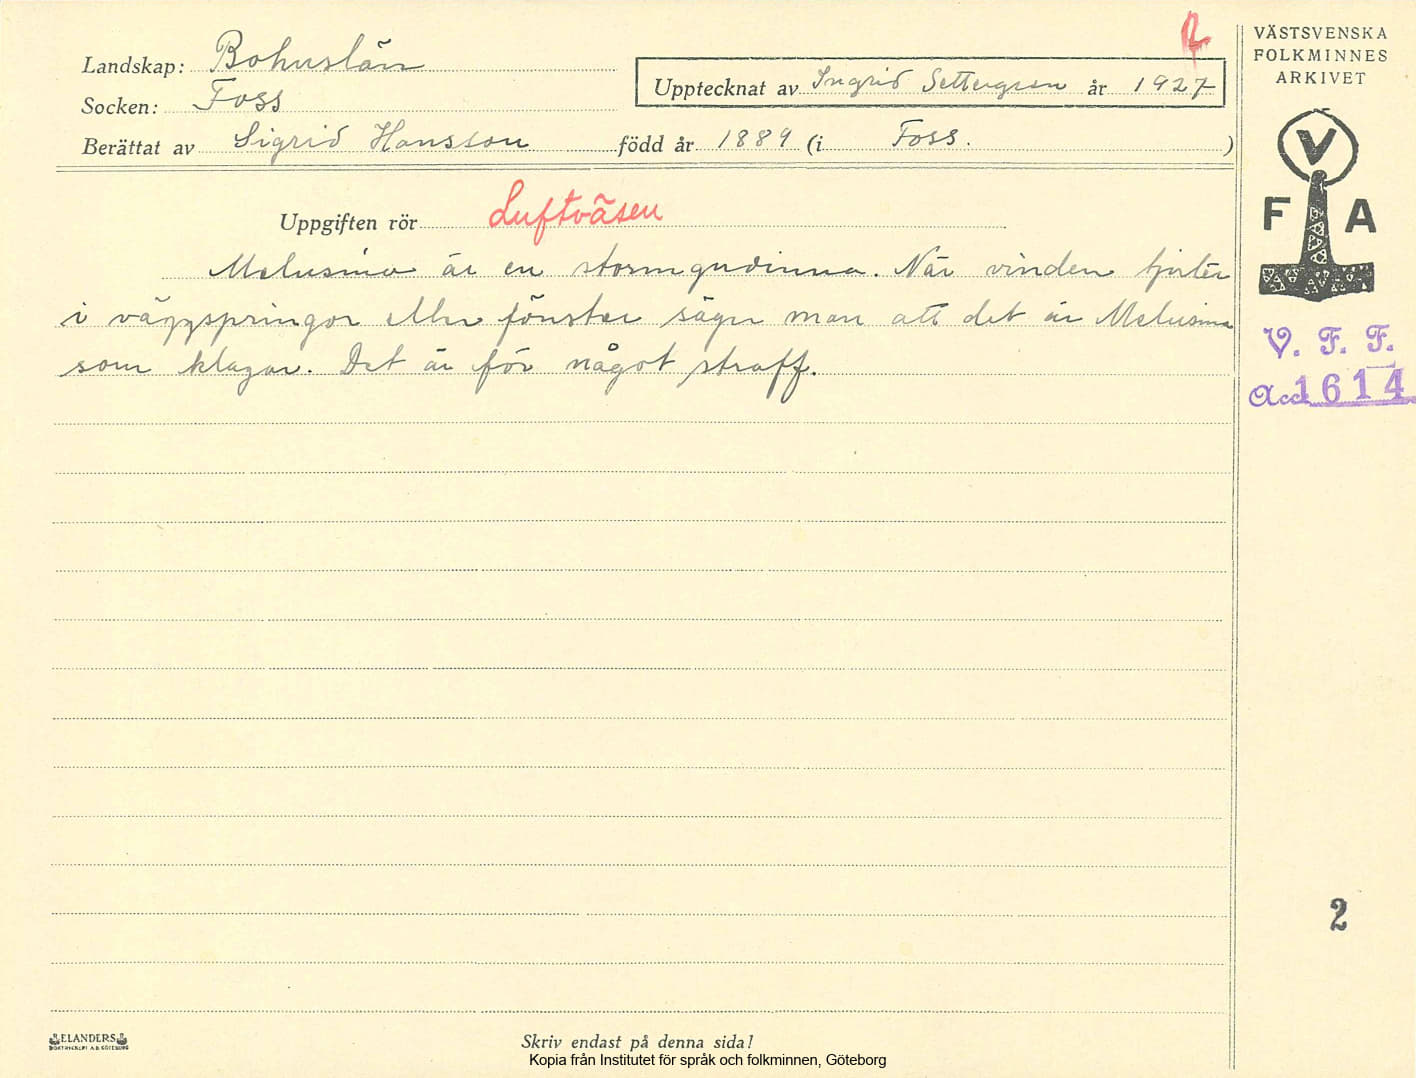 Landskap: Bohuslän
Socken: Foss
Upptecknat av Ingrid Settergren år 1927
Berättat av Sigrid Hansson född år 1889 (i Foss. )
Uppgiften rör Luftväsen
Melusina är en stormgudinna. När vinden tjuter
i väggspringor eller fönster säger man att det är Melusina
som klagar. Det är för något straff.
VÄSTSVENSKA
FOLKMINNES
ARKIVET
V
F A
V. F. F.
Acc 1614
2
ELANDERS
BOKTRYCKERI A.B. GÖTEBORG
Skriv endast på denna sida!
Kopia från Institutet för språk och folkminnen, Göteborg